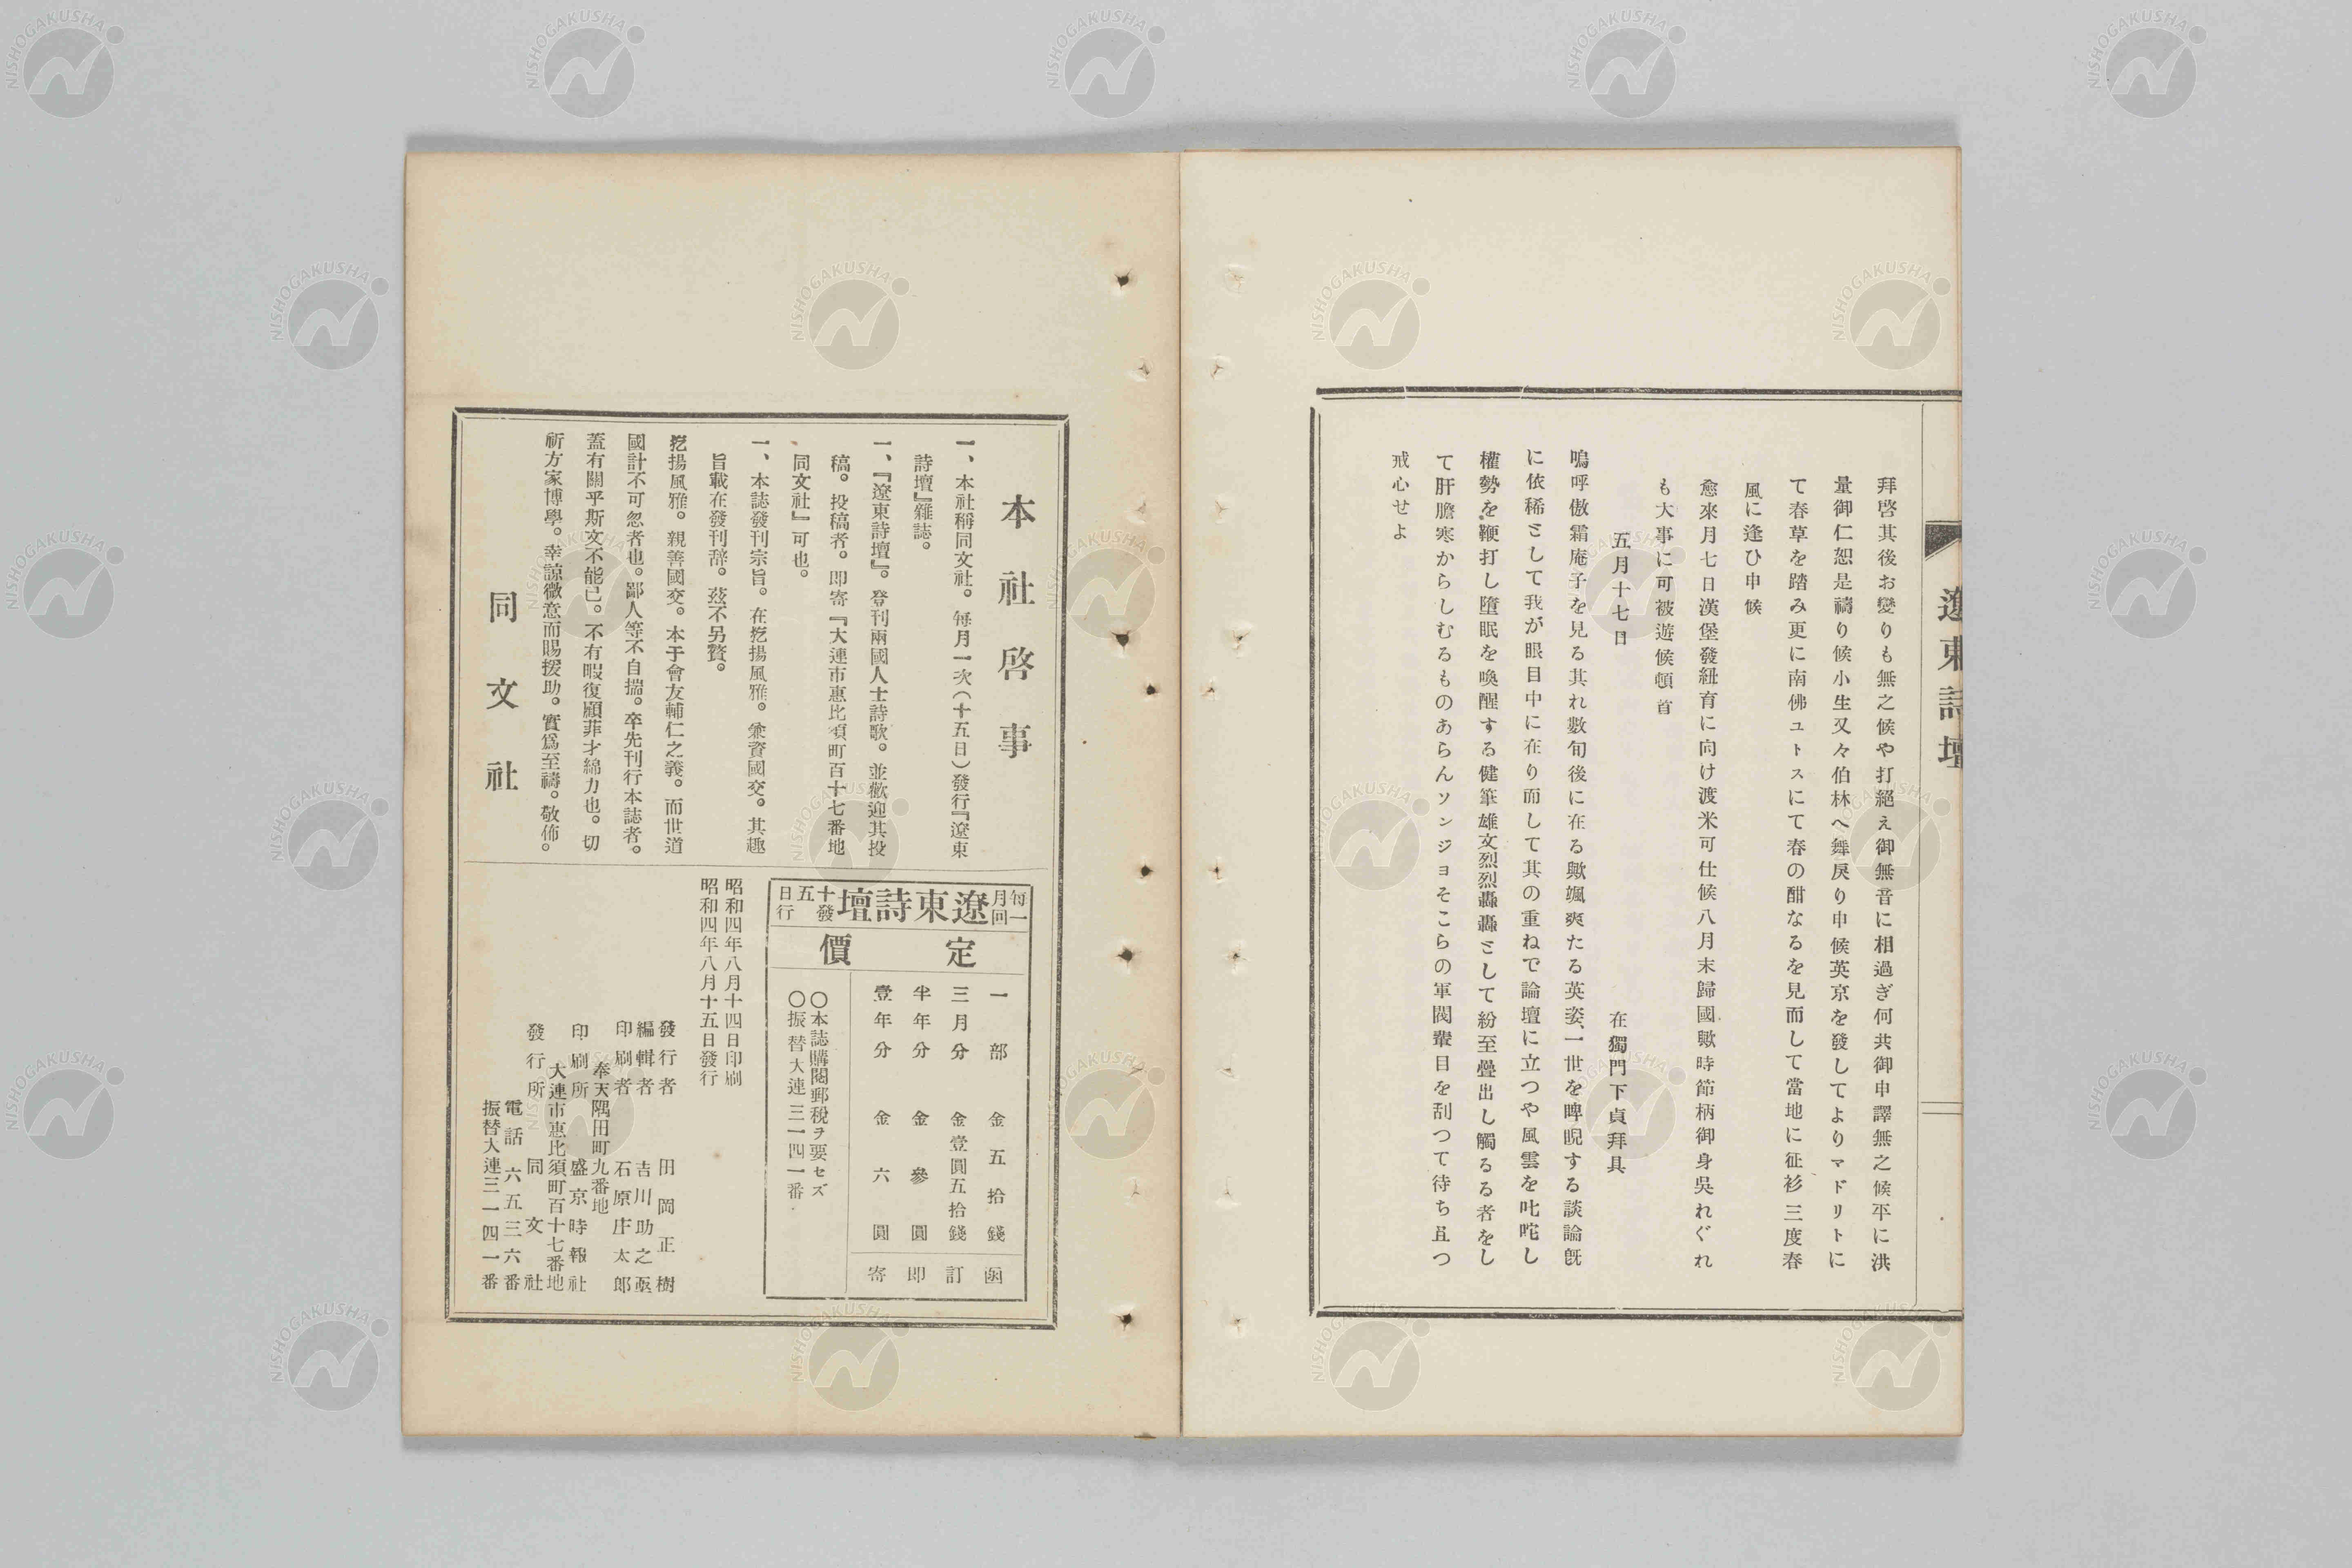 遼東詩壇
拜啓其後お變りも無之候や打絕え御無音に相過ぎ何共御申譯無之候平に洪
量御仁恕是禱り候小生又々伯林へ舞戾り申候英京を發してよりマドリトに
て春草を踏み更に南佛ユトスにて春の酣なるを見而して當地に征衫三度春
風に逢ひ申候
愈來月七日漢堡發紐育に向け渡米可仕候八月末歸國歟時節柄御身吳れぐれ
も大事に可被遊候頓首
五月十七日
在獨門下貞拜具
嗚呼傲霜庵子を見る其れ數旬後に在る歟颯爽たる英姿、一世を睥睨する談論旣
に依稀として我が眼目中に在り而して其の重ねで論壇に立つや風雲を叱咤し
權勢を鞭打し墮眠を喚醒する健筆雄文烈烈轟轟として紛至疊出し觸るる者をし
て肝膽寒からしむるものあらんソンジョそこらの軍閥輩目を刮つて待ち且つ
戒心せよ
本社啓事
一、本社稱同文社。每月一次(十五日)發行『遼東
詩壇』雜誌。
一、『遼東詩壇』。登刊兩國人士詩歌。並歡迎其投
稿。投稿者。即寄『大連市惠比須町百十七番地
同文社』可也。
一、本誌發刊宗旨。在扢揚風雅。兼資國交。其趣
旨載在發刊辭。茲不另贅。
扢揚風雅。親善國交。本于會友輔仁之義。而世道
國計不可忽者也。鄙人等不自揣。卒先刊行本誌者。
蓋有關乎斯文不能已。不有暇復顧菲才綿力也。切
祈方家博學。幸諒微意而賜援助。實爲至禱。敬佈。
同文社
每月一回
遼東詩壇
十五日發行
定價
一部 金五拾錢
三月分 金壹圓五拾錢
半年分 金參圓
壹年分 金六圓
函訂即寄
〇本誌購閱郵稅ヲ要セズ
〇振替大連三一四一番
昭和四年八月十四日印刷
昭和四年八月十五日發行
發行者 田岡正樹
編輯者 吉川助之
印刷者 石原庄太郎
奉天隅田町九番地
印刷所 盛京時報社
大連市惠比須町百十七番地
發行所 同文社
電話六五三六番
振替大連三一四一番
NISHOGAKUSHA